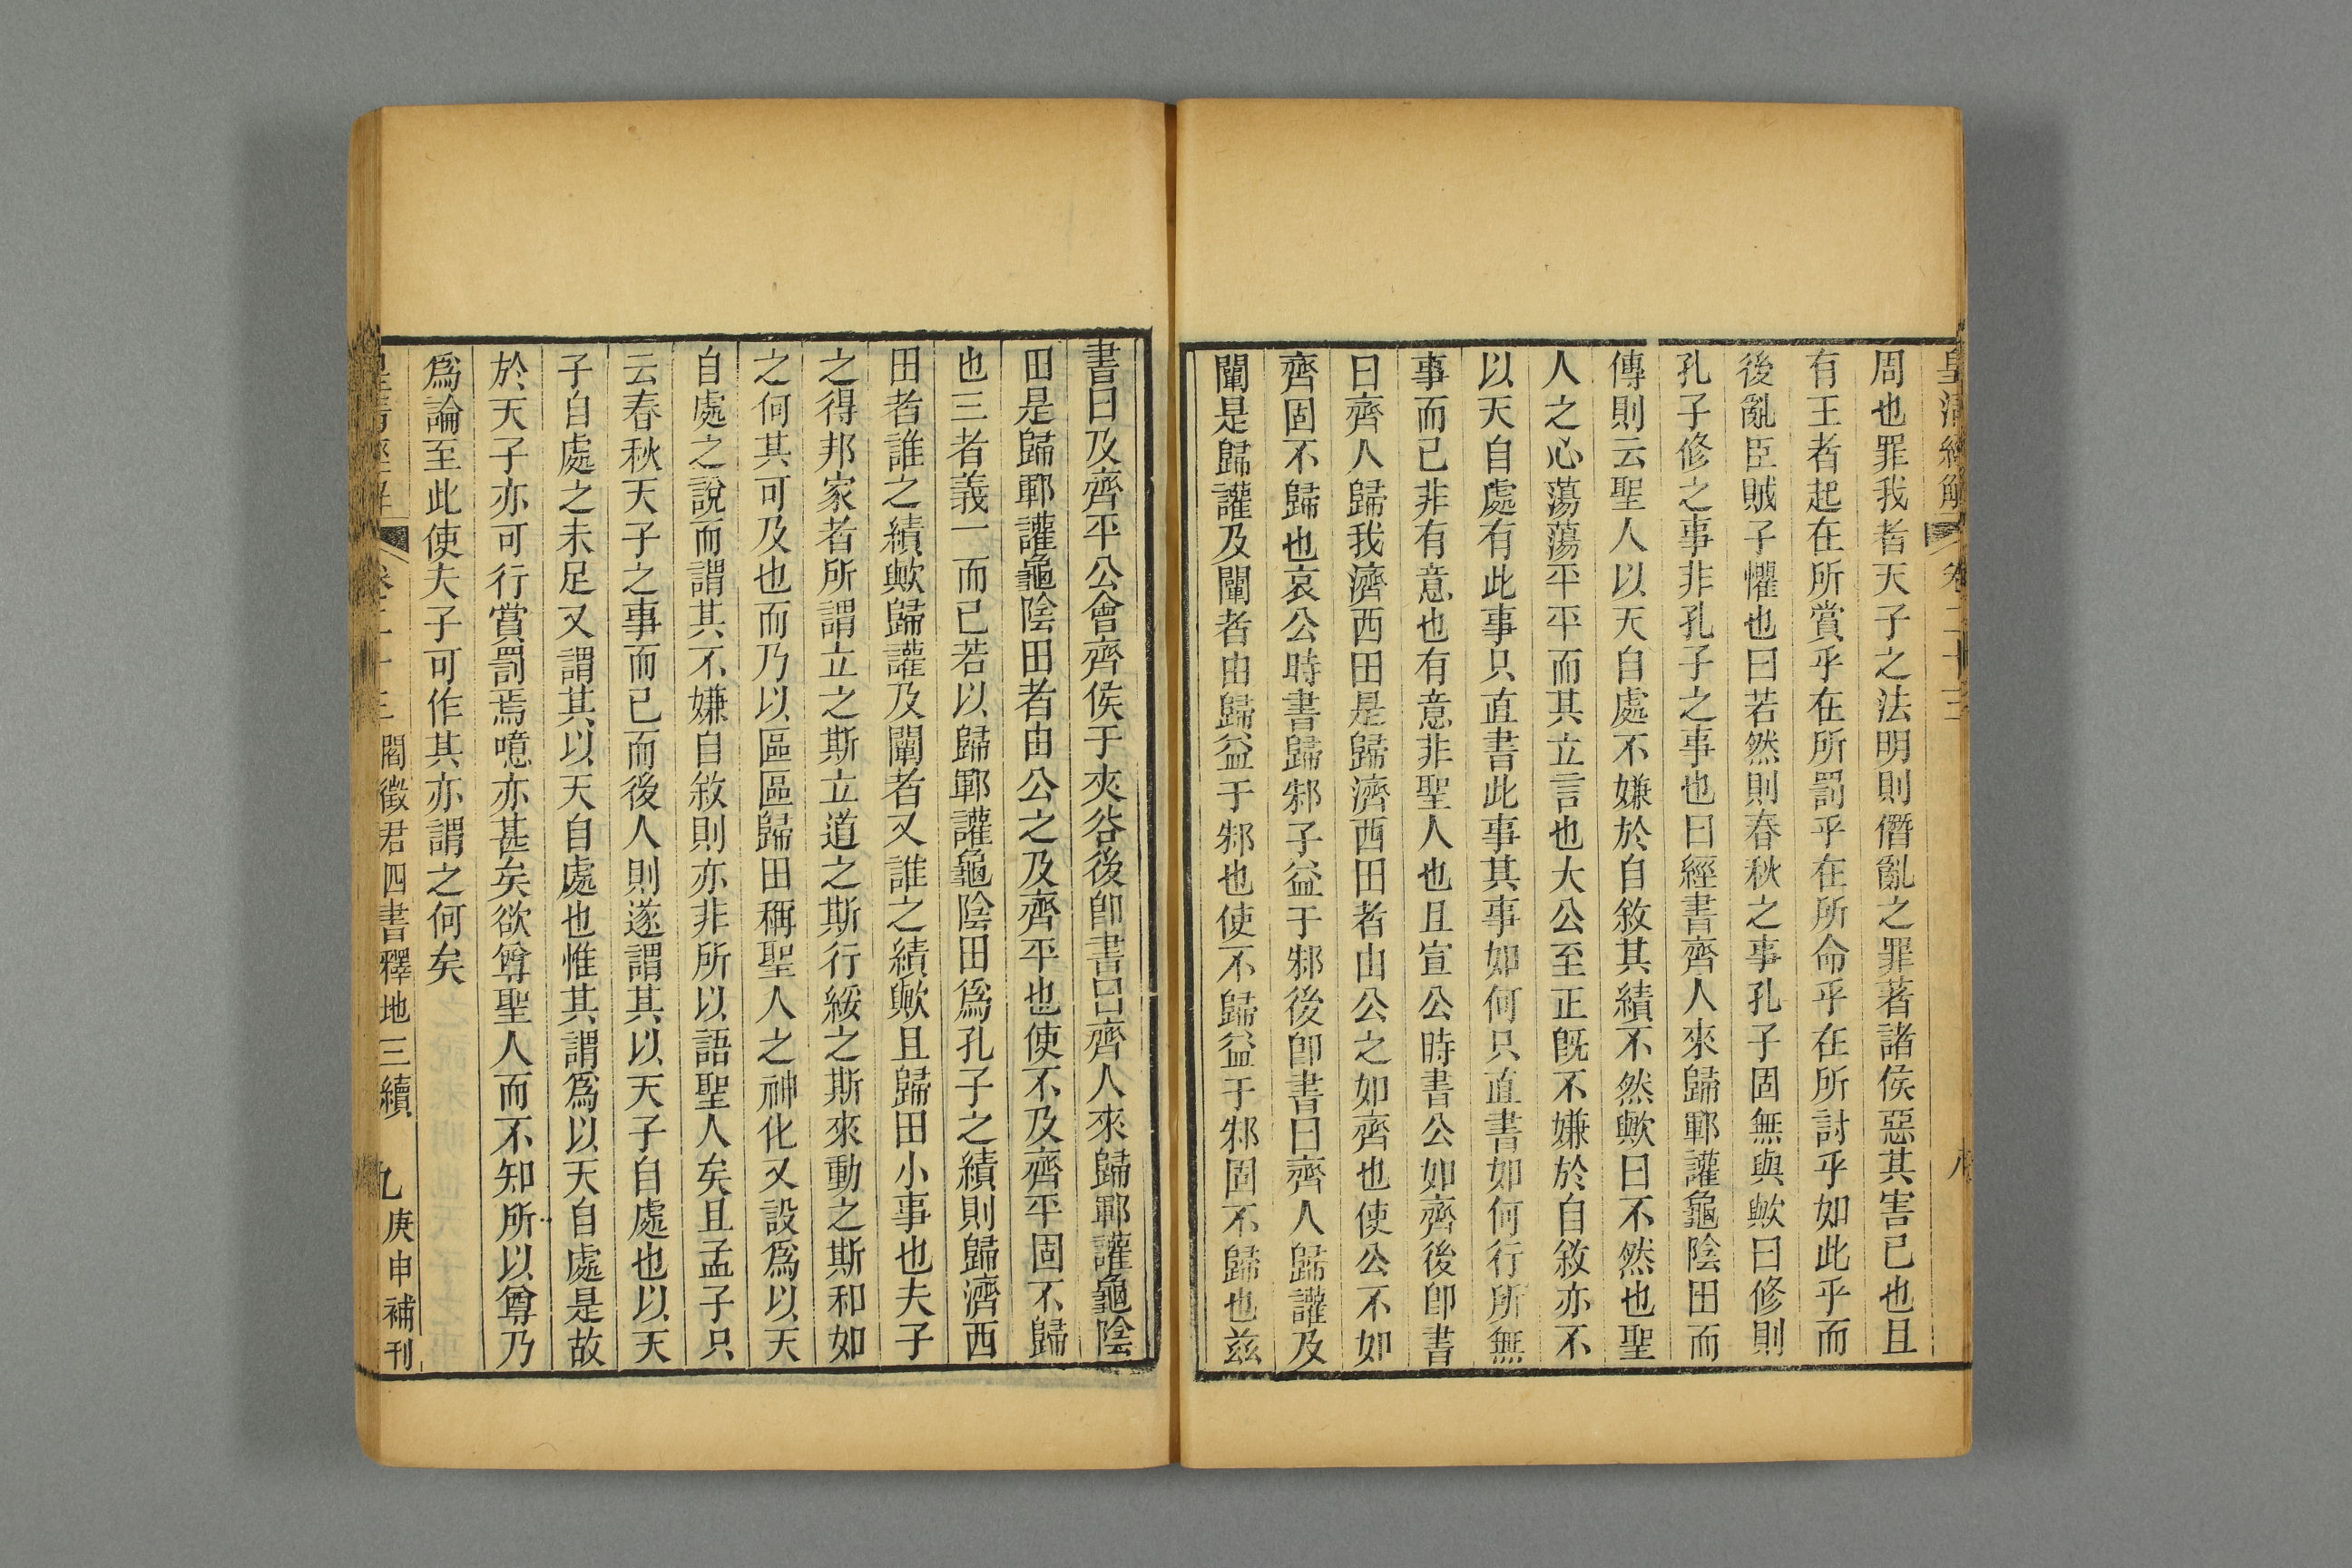 皇清經解 卷二十三 八
周也罪我者天子之法明則僭亂之罪著諸侯惡其害己也且
有王者起在所賞乎在所罰乎在所命乎在所討乎如此乎而
後亂臣賊子懼也曰若然則春秋之事孔子固無與歟曰修則
孔子修之事非孔子之事也曰經書齊人來歸鄆讙龜陰田而
傳則云聖人以天自處不嫌於自敘其績不然歟曰不然也聖
人之心蕩蕩平平而其立言也大公至正旣不嫌於自敘亦不
以天自處有此事只直書此事其事如何只直書如何行所無
事而已非有意也有意非聖人也且宣公時書公如齊後卽書
曰齊人歸我濟西田是歸濟西田者由公之如齊也使公不如
齊固不歸也哀公時書歸邾子益于邾後卽書曰齊人歸讙及
闡是歸讙及闡者由歸益于邾也使不歸益于邾固不歸也兹
書曰及齊平公會齊侯于夾谷後卽書曰齊人來歸鄆讙龜陰
田是歸鄆讙龜陰田者由公之及齊平也使不及齊平固不歸
也三者義一而已若以歸鄆讙龜陰田爲孔子之績則歸濟西
田者誰之績歟歸讙及闡者又誰之績歟且歸田小事也夫子
之得邦家者所謂立之斯立道之斯行綏之斯來動之斯和如
之何其可及也而乃以區區歸田稱聖人之神化又設爲以天
自處之說而謂其不嫌自敘則亦非所以語聖人矣且孟子只
云春秋天子之事而已而後人則遂謂其以天子自處也以天
子自處之未足又謂其以天自處也惟其謂爲以天自處是故
於天子亦可行賞罰焉噫亦甚矣欲尊聖人而不知所以尊乃
爲論至此使夫子可作其亦謂之何矣
皇清經解 卷二十三 閻徵君四書釋地三續 九 庚申補刊